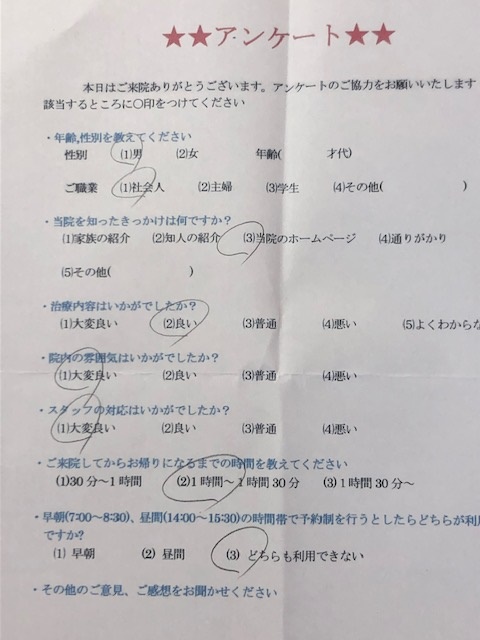 ★★アンケート★★
本日はご来院ありがとうございます。アンケートのご協力をお願いいたします
該当するところに○印をつけてください
・年齢,性別を教えてください
性別 (1)男 (2)女 年齢( 才代)
ご職業 (1)社会人 (2)主婦 (3)学生 (4)その他( )
・当院を知ったきっかけは何ですか?
(1)家族の紹介 (2)知人の紹介 (3)当院のホームページ (4)通りがかり
(5)その他( )
・治療内容はいかがでしたか?
(1)大変良い (2)良い (3)普通 (4)悪い (5)よくわからな
・院内の雰囲気はいかがでしたか?
(1)大変良い (2)良い (3)普通 (4)悪い
・スタッフの対応はいかがでしたか?
(1)大変良い (2)良い (3)普通 (4)悪い
・ご来院してからお帰りになるまでの時間を教えてください
(1)30分〜1時間 (2)1時間〜1時間30分 (3)1時間30分〜
・早朝(7:00〜8:30)、昼間(14:00〜15:30)の時間帯で予約制を行うとしたらどちらが利
ですか?
(1) 早朝 (2) 昼間 (3) どちらも利用できない
・その他のご意見、ご感想をお聞かせください